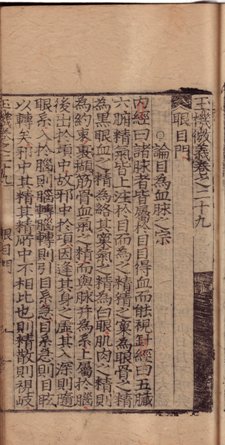 玉機微義卷之二十九
眼目門
論目為血脉之宗
內經曰諸脉者皆屬於目目得血而能視針經曰五臟
六腑精氣皆上注於目而為之精精之窠為眼骨之精
為黑眼血之精為絡其窠氣之精為白眼肌肉之精則
為約束裹擷筋骨血氣之精而與脉并為系上屬於腦
後出於項中故邪中於項因逢其身之虛其入深則隨
眼系入於腦則腦轉腦轉則引目系急目系急則目眩
以轉矣邪中其精其精所中不相比也則精散則視歧
玉機卷之二十九